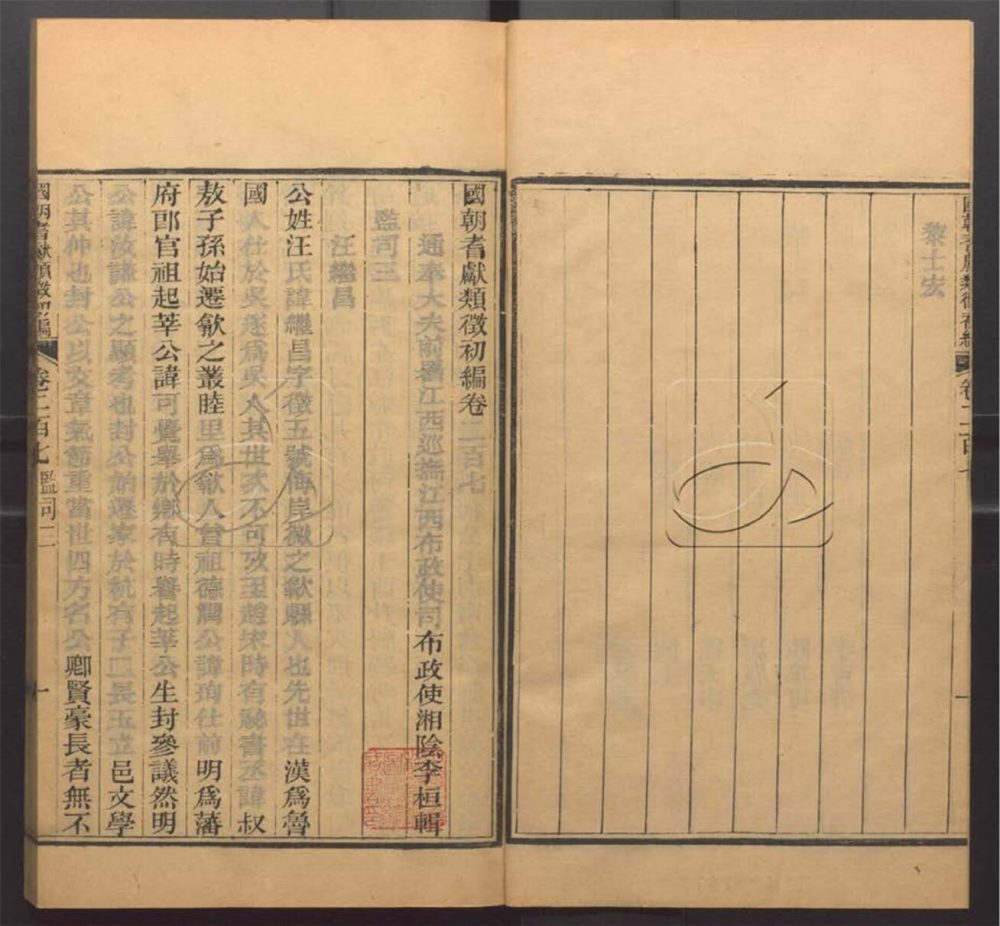 黎士宏
國朝耆獻類徵初編卷二百七
通奉大夫前署江西巡撫江西布政使司布政使湘陰李桓輯
監司三
汪繼昌
公姓汪氏諱繼昌字徵五號悔岸徽之歙縣人也先世在漢爲魯
國人仕於吳遂爲吳人其世次不可攷至趙宋時有祕書丞諱叔
敖子孫始遷歙之叢睦里爲歙人曾祖德潤公諱珣仕前明爲藩
府郎官祖起莘公諱可覺舉於鄉有時譽起莘公生封參議然明
公諱汝謙公之顯考也封公始遷家於杭有子二長玉立邑文學
公其仲也封公以文章氣節重當世四方名公卿賢豪長者無不
國朝耆獻類徵初編
卷二百七
監司三
一